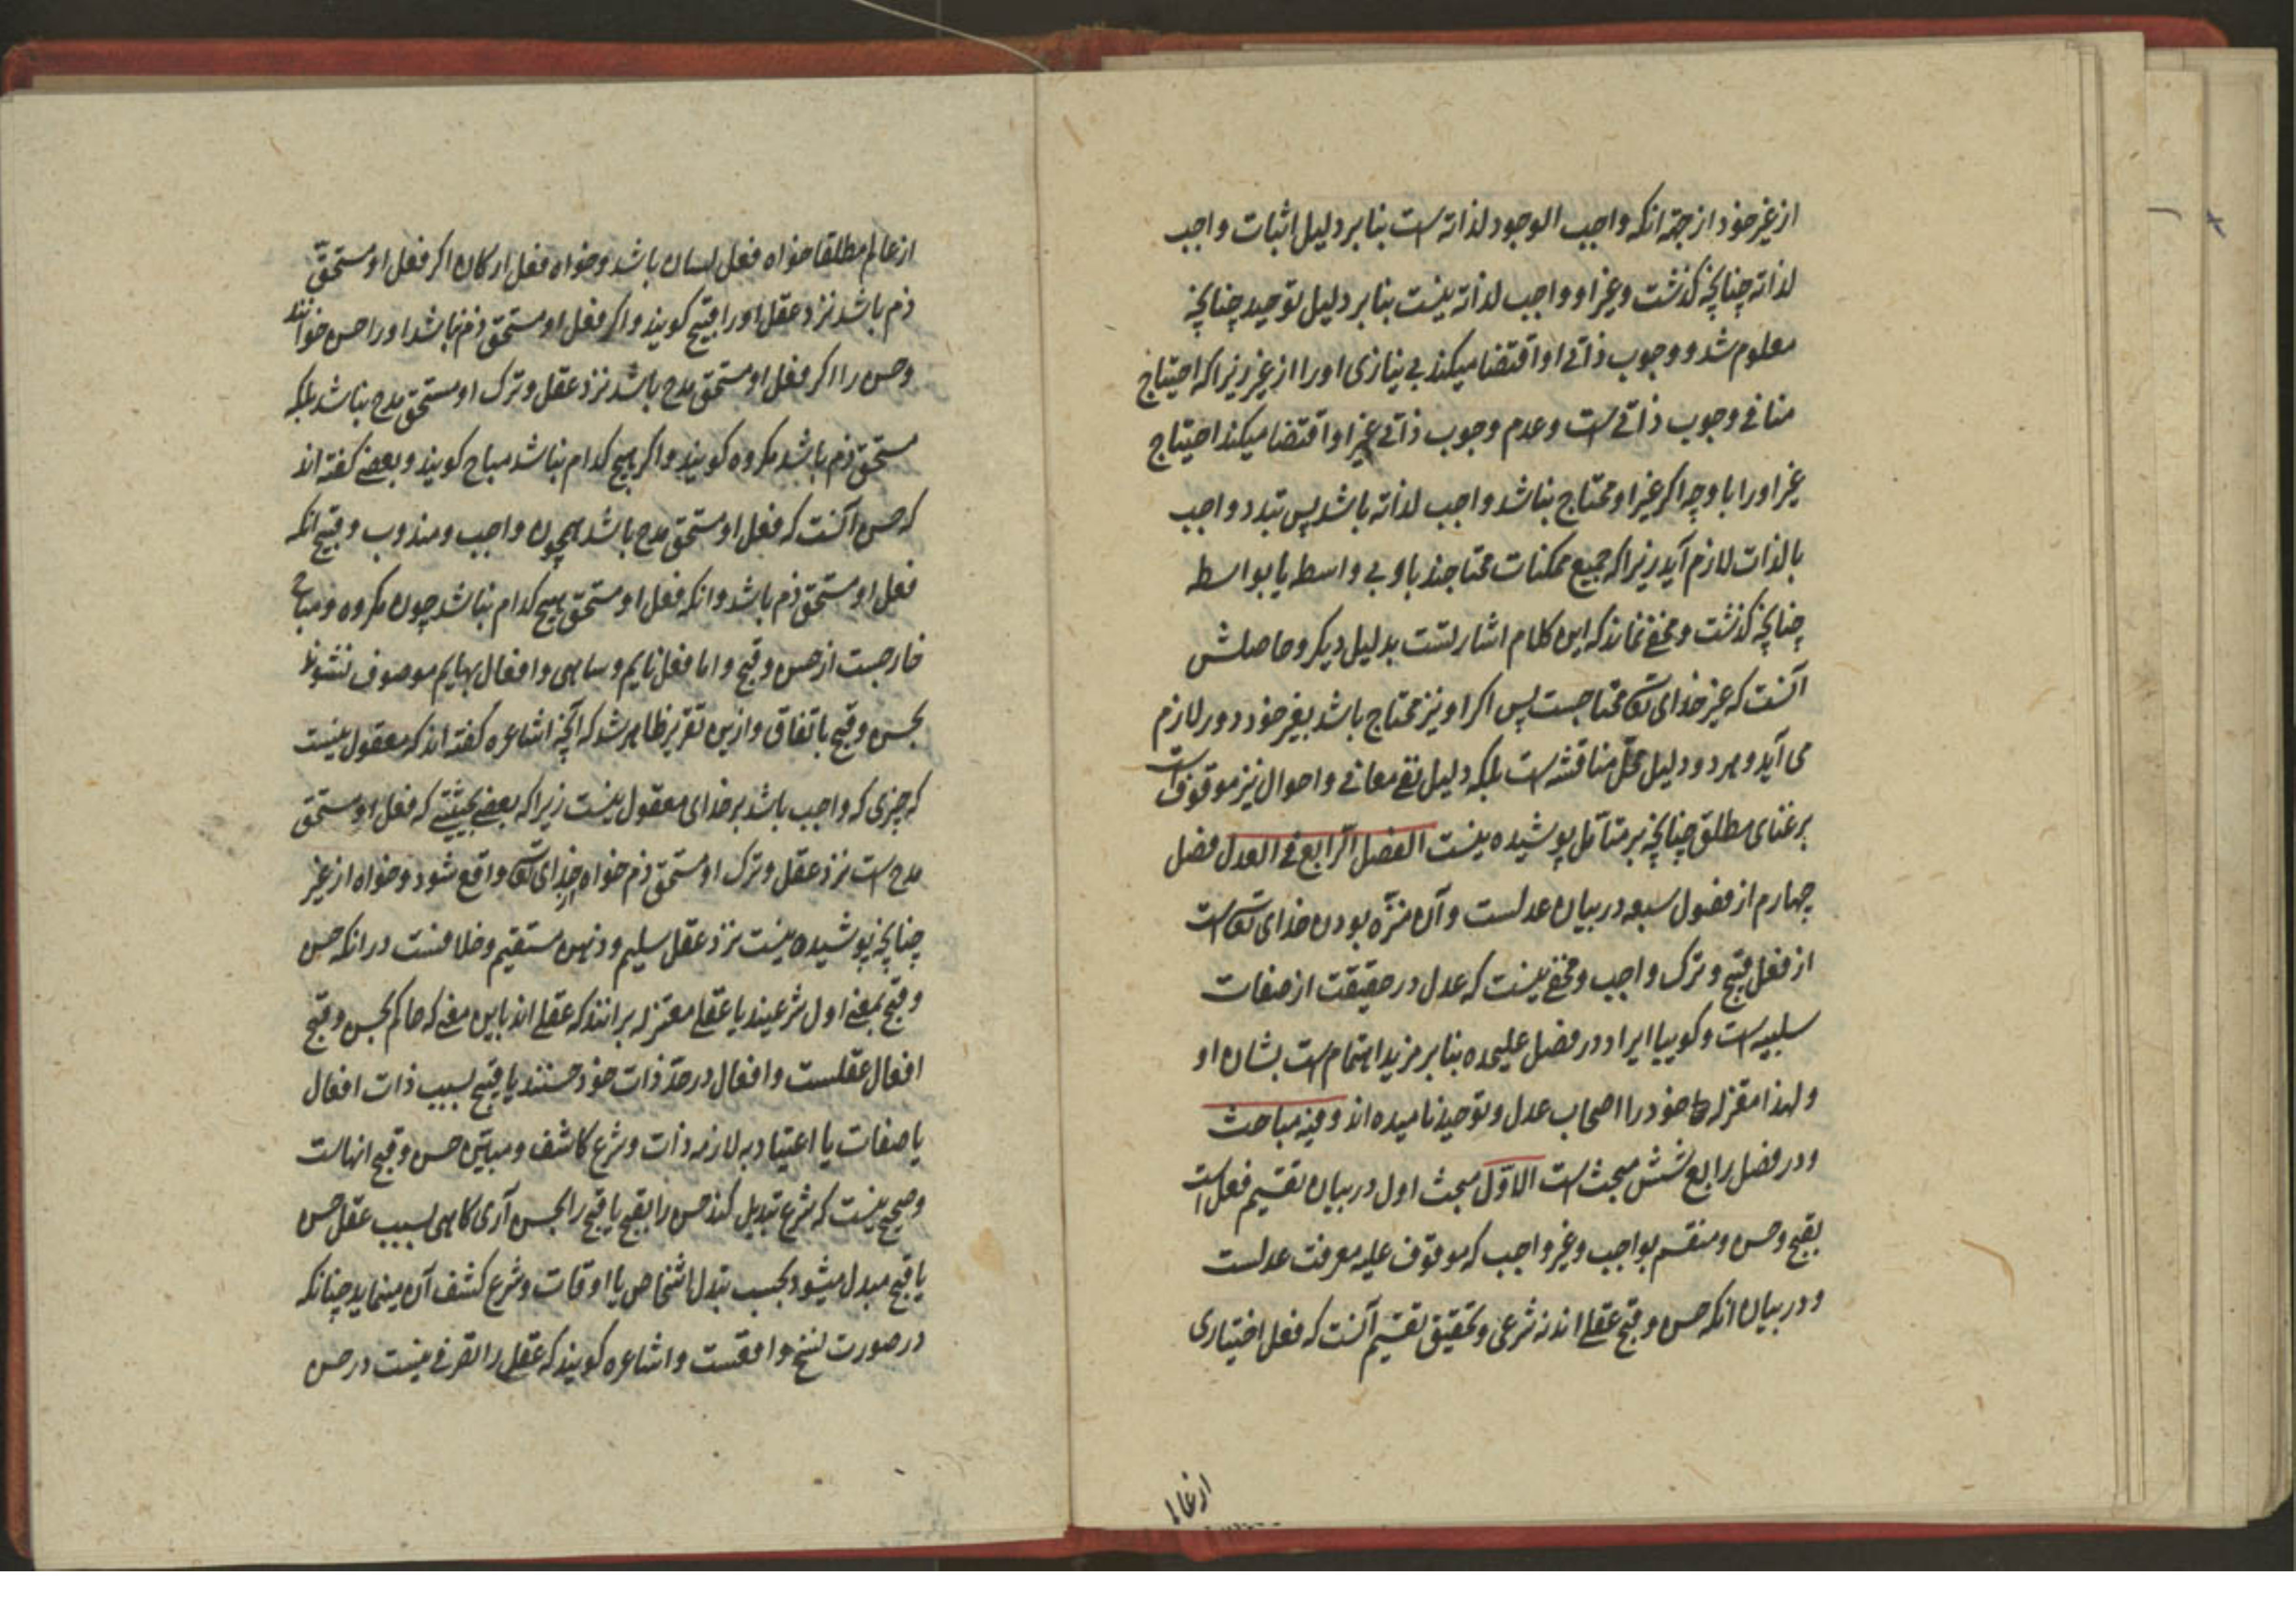 از غیر خود از جهة انکه واجب الوجود لذاته است بنا بر دلیل اثبات واجب
لذاته چنانچه گذشت و غیر او واجب لذاته نیست بنا بر دلیل توحید چنانچه
معلوم شد و وجوب ذاتی او اقتضا میکند بی نیازی او را از غیر زیرا که احتیاج
منافی وجوب ذاتی است و عدم وجوب ذاتی غیر او اقتضا میکند احتیاج
غیر او را با و چه اگر غیر او محتاج نباشد واجب لذاته باشد پس تعدد واجب
بالذات لازم آید زیرا که جمیع ممکنات محتاجند باو بی واسطه یا بواسطه
چنانچه گذشت و مخفی نماند که این کلام اشارتست بدلیل دیگر و حاصلش
آنست که غیر خدای تعالی محتاجست پس اگر او نیز محتاج باشد بغیر خود دور لازم
می آید و هر دو دلیل محل مناقشه است بلکه دلیل نفی معانی و احوال نیز موقوف است
بر غنای مطلق چنانچه بر متأمل پوشیده نیست الفصل الرابع فی العدل فصل
چهارم از فصول سبعه در بیان عدلست و آن منزّه بودن خدای تعالی است
از فعل قبیح و ترک واجب و مخفی نیست که عدل در حقیقت از صفات
سلبیه است و گوییا ایراد در فصل علیحده بنا بر مزید اهتمام است بشان او
و لهذا معتزله خود را اصحاب عدل و توحید نامیده اند و فیه مباحث
و در فصل رابع شش مبحث است الاوّل مبحث اول در بیان تقسیم فعل است
بقبح و حسن و منقسم بواجب و غیر واجب که موقوف علیه معرفت عدلست
و در بیان انکه حسن و قبح عقلی اند نه شرعی و تحقیق تقسیم آنست که فعل اختیاری
از عا لم
از عالم مطلقا خواه فعل لسان باشد و خواه فعل ارکان اگر فعل او مستحق
ذم باشد نزد عقل او را قبیح گویند و اگر فعل او مستحق ذم نباشد او را حسن خوانند
و حسن را اگر فعل او مستحق مدح باشد نزد عقل و ترک او مستحق مدح نباشد بلکه
مستحق ذم باشد مکروه گویند و اگر هیچ کدام نباشد مباح گویند و بعضی گفته اند
که حسن آنست که فعل او مستحق مدح باشد همچون واجب و مندوب و قبیح انکه
فعل او مستحق ذم باشد و انکه فعل او مستحق هیچ کدام نباشد چون مکروه و مباح
خارجست از حسن و قبح و اما فعل نایم و ساهی و افعال بهایم موصوف نشوند
بحسن و قبح باتفاق و ازین تقریر ظاهر شد که آنچه اشاعره گفته اند که معقول نیست
که چیزی که واجب باشد بر خدای معقول نیست زیرا که بعضی بحیثیتی که فعل او مستحق
مدح است نزد عقل و ترک او مستحق ذم خواه از خدای تعالی واقع شود و خواه از غیر
چنانچه پوشیده نیست نزد عقل سلیم و ذهن مستقیم و خلافست در انکه حسن
و قبح بمعنی اول شرعیند یا عقلی معتزله برانند که عقلی اند باین معنی که حاکم بحسن و قبح
افعال عقلست و افعال در حدّ ذات خود حسنند یا قبیح بسبب ذات افعال
یا صفات یا اعتبار به لازمه ذات و شرع کاشف و مبیّن حسن و قبح انهاست
و صحیح نیست که شرع تبدیل کند حسن را بقبح یا قبح را بحسن آری گاهی بسبب عقل حسن
یا قبح مبدل میشود بحسب تبدل اشخاص یا اوقات و شرع کشف آن مینماید چنانکه
در صورت نسخ واقعست و اشاعره گویند که عقل را تصرفی نیست در حسن